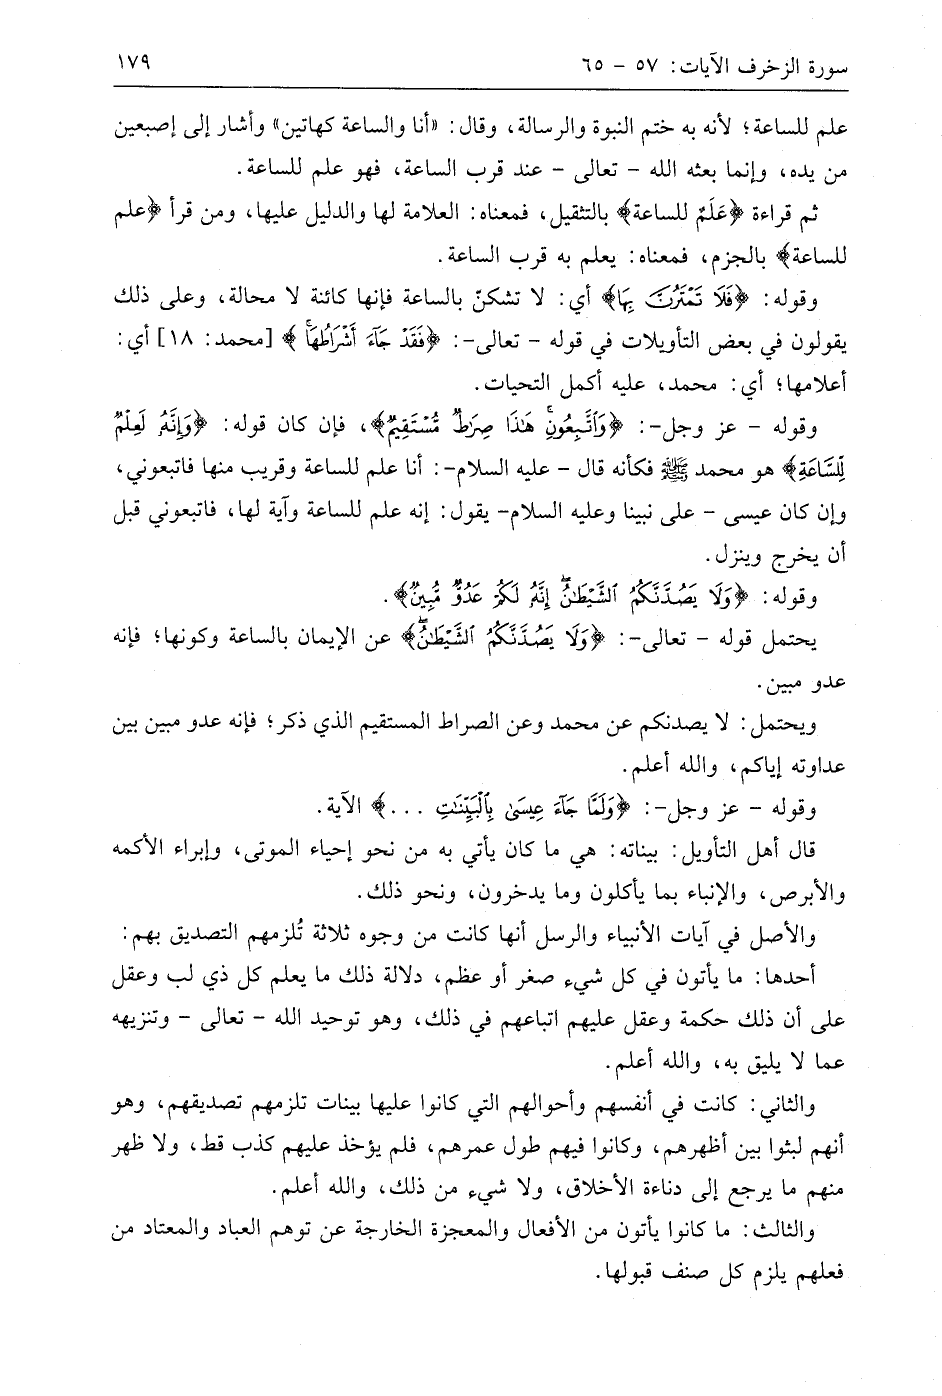 سورة الزخرف الآيات: ٥٧ - ٦٥ ١٧٩
علم للساعة؛ لأنه به ختم النبوة والرسالة، وقال: «أنا والساعة كهاتين» وأشار إلى إصبعين
من يده، وإنما بعثه الله - تعالى - عند قرب الساعة، فهو علم للساعة.
ثم قراءة ﴿عَلَمٌ للساعة﴾ بالتثقيل، فمعناه: العلامة لها والدليل عليها، ومن قرأ ﴿علم
للساعة﴾ بالجزم، فمعناه: يعلم به قرب الساعة.
وقوله: ﴿فَلَا تَمْتَرُنَّ بِهَا﴾ أي: لا تشكنّ بالساعة فإنها كائنة لا محالة، وعلى ذلك
يقولون في بعض التأويلات في قوله - تعالى-: ﴿فَقَدْ جَآءَ أَشْرَاطُهَاۚ﴾ [محمد: ١٨] أي:
أعلامها؛ أي: محمد، عليه أكمل التحيات.
وقوله - عز وجل-: ﴿وَٱتَّبِعُونِۚ هَٰذَا صِرَٰطٌ مُّسْتَقِيمٌ﴾، فإن كان قوله: ﴿وَإِنَّهُۥ لَعِلْمٌ
لِّلسَّاعَةِ﴾ هو محمد ﷺ فكأنه قال - عليه السلام-: أنا علم للساعة وقريب منها فاتبعوني،
وإن كان عيسى - على نبينا وعليه السلام- يقول: إنه علم للساعة وآية لها، فاتبعوني قبل
أن يخرج وينزل.
وقوله: ﴿وَلَا يَصُدَّنَّكُمُ ٱلشَّيْطَٰنُۖ إِنَّهُۥ لَكُمْ عَدُوٌّ مُّبِينٌ﴾.
يحتمل قوله - تعالى-: ﴿وَلَا يَصُدَّنَّكُمُ ٱلشَّيْطَٰنُۖ﴾ عن الإيمان بالساعة وكونها؛ فإنه
عدو مبين.
ويحتمل: لا يصدنكم عن محمد وعن الصراط المستقيم الذي ذكر؛ فإنه عدو مبين بين
عداوته إياكم، والله أعلم.
وقوله - عز وجل-: ﴿وَلَمَّا جَآءَ عِيسَىٰ بِٱلْبَيِّنَٰتِ ...﴾ الآية.
قال أهل التأويل: بيناته: هي ما كان يأتي به من نحو إحياء الموتى، وإبراء الأكمه
والأبرص، والإنباء بما يأكلون وما يدخرون، ونحو ذلك.
والأصل في آيات الأنبياء والرسل أنها كانت من وجوه ثلاثة تُلزمهم التصديق بهم:
أحدها: ما يأتون في كل شيء صغر أو عظم، دلالة ذلك ما يعلم كل ذي لب وعقل
على أن ذلك حكمة وعقل عليهم اتباعهم في ذلك، وهو توحيد الله - تعالى - وتنزيهه
عما لا يليق به، والله أعلم.
والثاني: كانت في أنفسهم وأحوالهم التي كانوا عليها بينات تلزمهم تصديقهم، وهو
أنهم لبثوا بين أظهرهم، وكانوا فيهم طول عمرهم، فلم يؤخذ عليهم كذب قط، ولا ظهر
منهم ما يرجع إلى دناءة الأخلاق، ولا شيء من ذلك، والله أعلم.
والثالث: ما كانوا يأتون من الأفعال والمعجزة الخارجة عن توهم العباد والمعتاد من
فعلهم يلزم كل صنف قبولها.